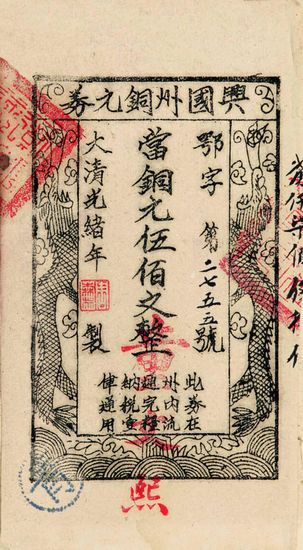 興國州銅元券
鄂字第二七五五號
當銅元伍佰之整
大清光緒年製
此券在
州內流
通完糧
納稅壹
律通用
熙